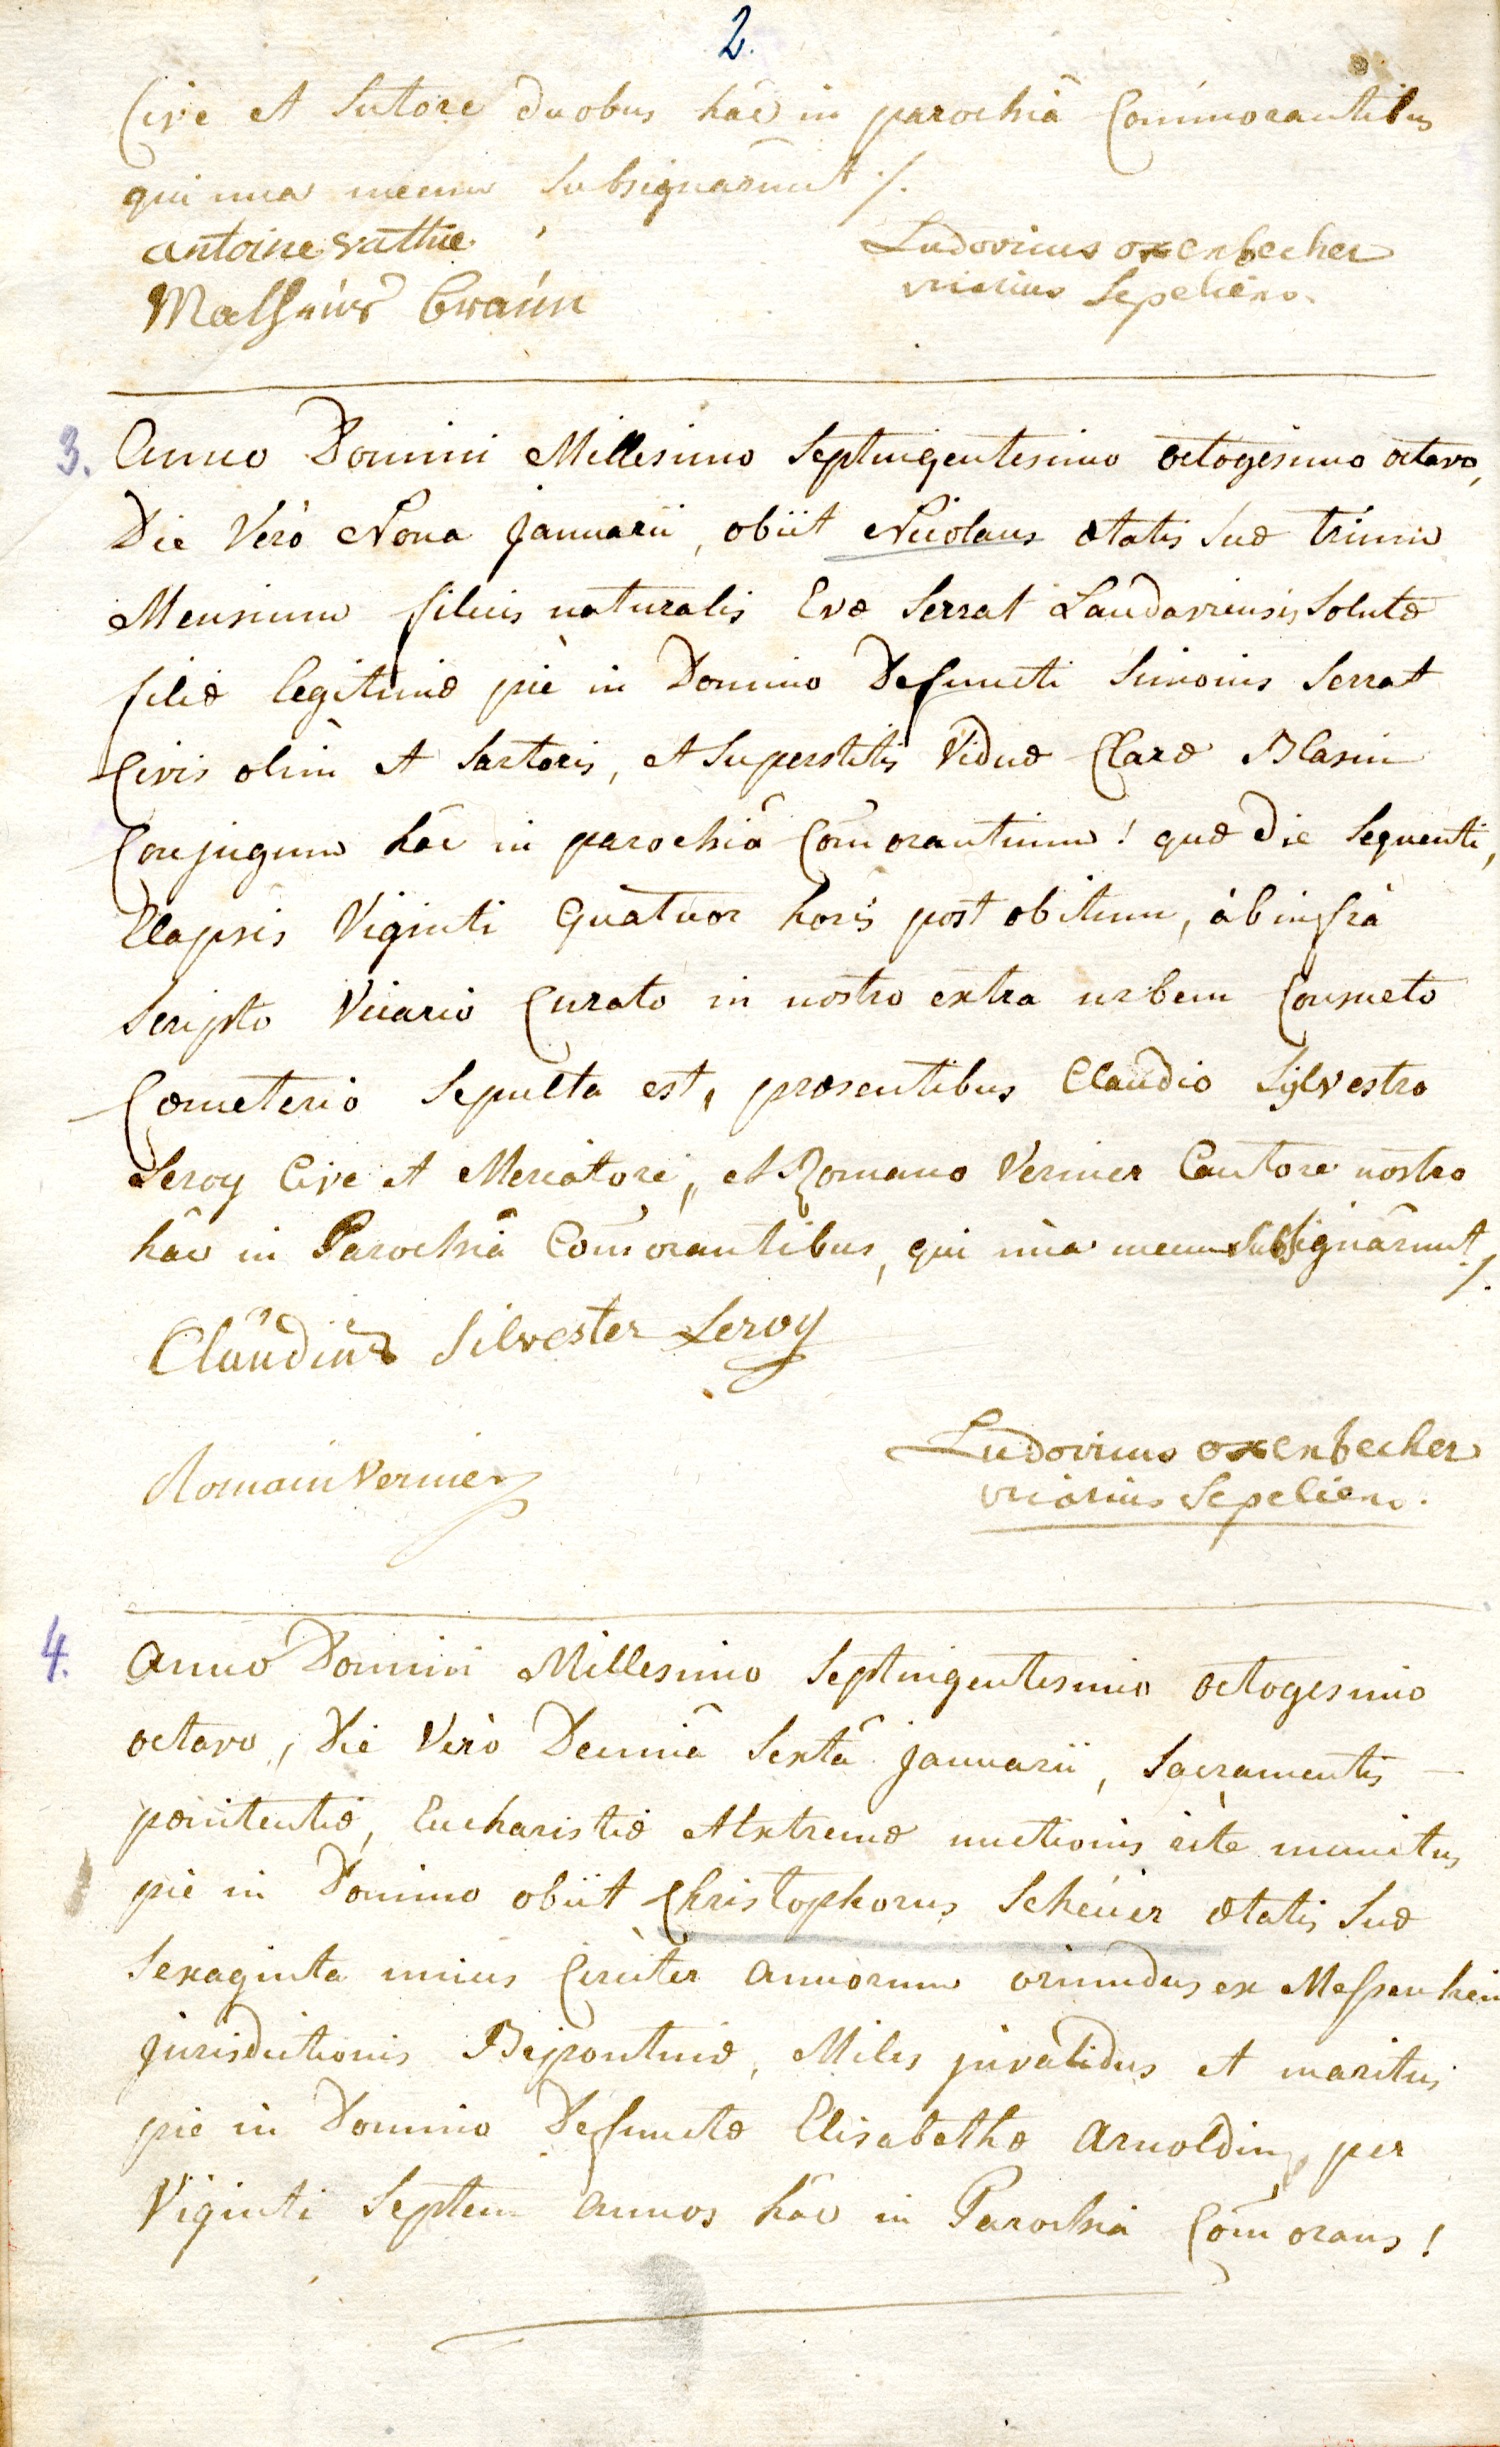 2.
Cive et Sutore duobus hac in parochiâ Commorantibus
qui una mecum Subsignarunt ./.
antoine vathie
Ludovicus oxenbecher
Matheus Braun
vicarius Sepeliens.
3. Anno Domini Millesimo Septuigentesimo octogesimo octavo,
Die Verò Nona Januarii, obiit Nicolaus ætatis suæ trium
Mensium filius naturalis Evæ Serrat Landaviensis Solutæ
filiæ legitimæ piè in Domino Defuncti Simonis Serrat
Civis olim et Sartoris, et Superstitis Viduæ Claræ Blasin
Conjugum hac in parochiâ Com̃orantium! quæ die sequenti,
Elapsis Viginti Quatuor horis post obitum, àb infrà
Scripto Vicario Curato in nostro extra urbem Consueto
Cœmeterio Sepulta est, præsentibus Claudio Sylvestro
Leroy Cive et Mercatore, et Romano Vernier Cantore nostro
hâc in Parochiâ Com̃orantibus, qui unà mecum Subsignârunt ./.
Claudius Silvester Leroy
Ludovicus oxenbecher
Romain Vernier
vicarius Sepeliens.
4. Anno Domini Millesimo Septuigentesimo octogesimo
octavo, Die Verò Decimâ Sextâ Januarii, Sacramentis
pœnitentiæ, Eucharistiæ et Extremæ unctionis ritè munitus
piè in Domino obiit Christophorus Scheüer ætatis suæ
Sexaginta unius Circiter annorum oriundus ex Messenhein
jurisdictionis Bipontinæ, Miles invalidus et maritus
pie in Domino Defunctæ Elisabethæ Arnoldin, per
Viginti Septem annos hâc in Parochia Com̃orans!